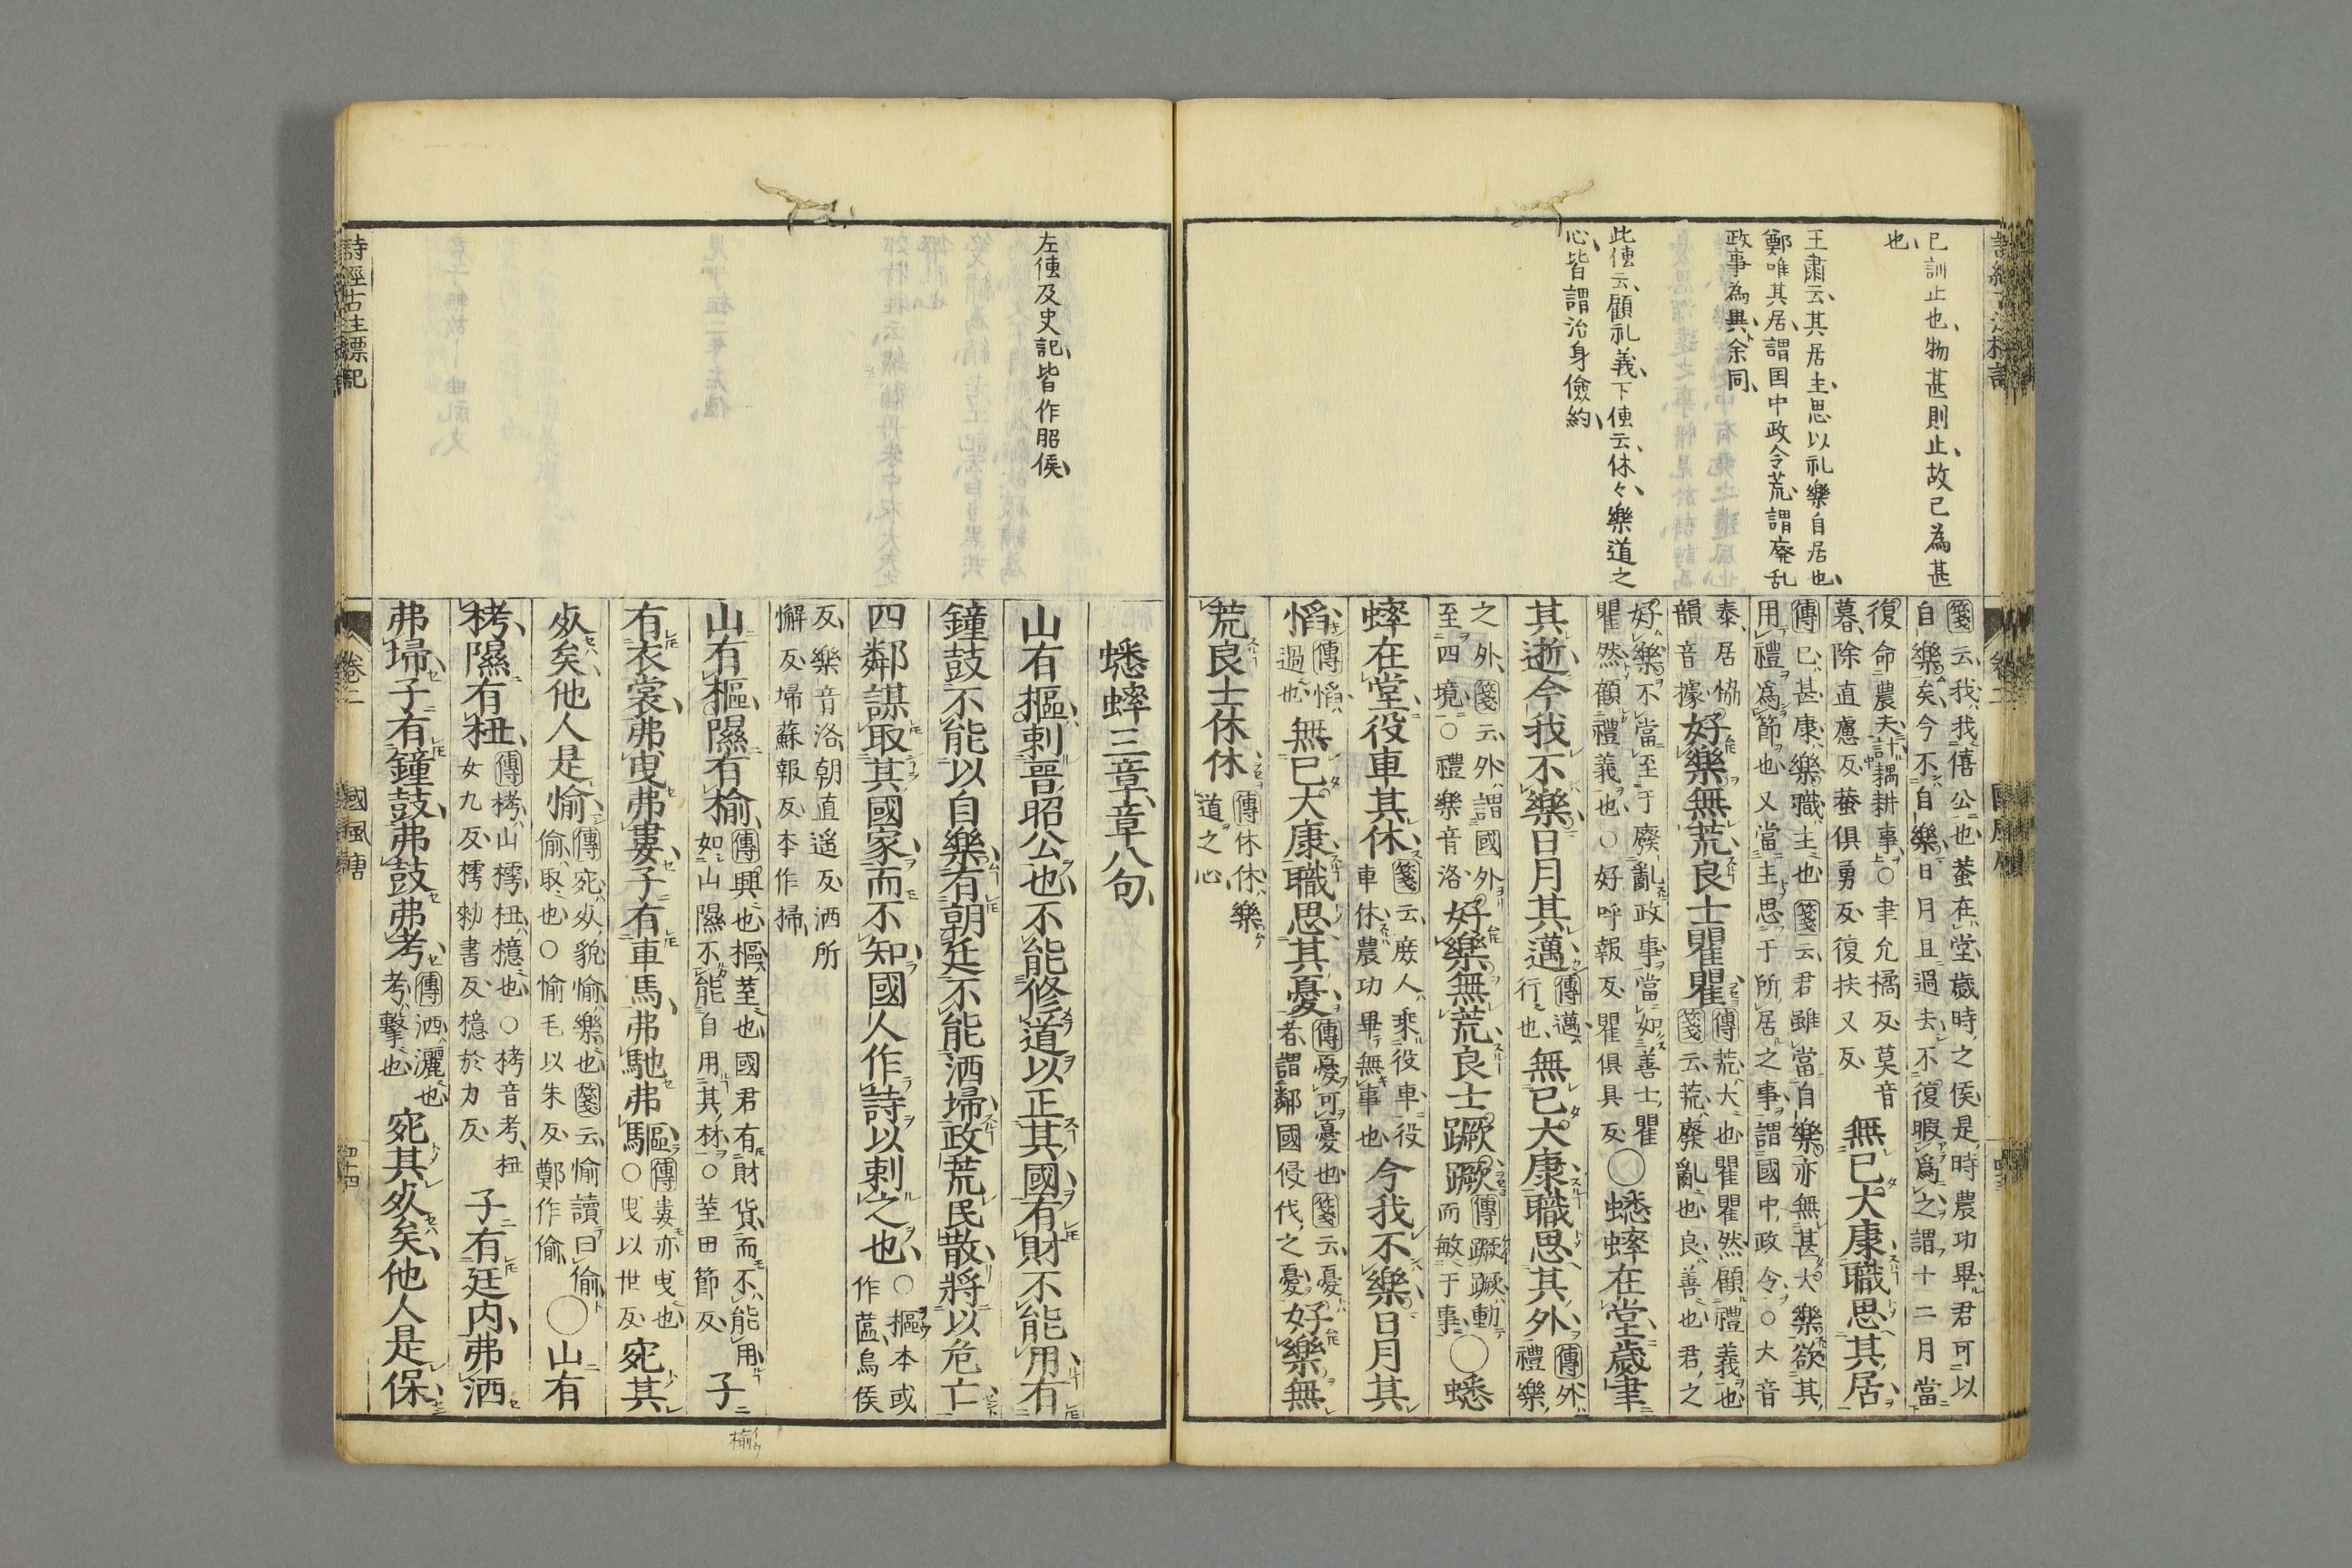 已訓止也、物甚則止、故已為甚
也、
王肅云、其居主思以礼樂自居也、
鄭唯其居、謂国中政令荒、謂廃乱
政事為異、余同、
此傳云、顧礼義、下傳云、休々、樂道之
心、皆謂治身儉約、
箋云、我、我僖公也、蛬在堂、歳時之候、是時農功畢、君可以
自樂矣、今不自樂、日月且過去、不復暇爲之、謂十二月當
復命農夫計耦耕事、○聿允橘反、莫音
暮、除直慮反、蛬俱勇反、復扶又反、
無已大康、職思其居
傳已、甚、康、樂、職、主也、箋云、君雖當自樂、亦無甚大樂、欲其
用禮爲節也、又當主思于所居之事、謂國中政令、○大音
泰、居協
韻音據
好樂無荒、良士瞿瞿、
傳荒、大也、瞿瞿然顧禮義也、
箋云、荒、廢亂也、良、善也、君之
好樂不當至于廢亂政事、當如善士瞿
瞿然顧禮義也、○好呼報反、瞿俱具反、
○蟋蟀在堂、歳聿
其逝、今我不樂、日月其邁、
傳邁、
行也、
無已大康、職思其外、
傳外、
禮樂
之外、箋云、外、謂國外
至四境、○禮樂音洛、
好樂無荒、良士蹶蹶、
傳蹶蹶、動
而敏于事、
○蟋
蟀在堂、役車其休、
箋云、庻人乘役車、役
車休、農功畢、無事也、
今我不樂、日月其
慆、
傳慆、
過也、
無已大康、職思其憂、
傳憂、可憂也、箋云、憂
者、謂鄰國侵伐之憂、
好樂無
荒、良士休休、
傳休休、樂
道之心、
蟋蟀三章、章八句、
左傳及史記、皆作昭侯、
山有樞、刺晉昭公也、不能修道以正其國、有財不能用、有
鐘鼓不能以自樂、有朝廷不能洒埽、政荒民散、將以危亡、
四鄰謀取其國家、而不知、國人作詩以刺之也、
○樞本或
作蓲、烏侯
反、樂音洛、朝直遥反、洒所
懈反、埽蘇報反、本作掃、
山有樞、隰有榆、
傳興也、樞、荎也、國君有財貨而不能用、
如山隰不能自用其材、○荎田節反、
子
有衣裳、弗曳弗婁、子有車馬、弗馳弗驅、
傳婁亦曳也、
○曳以世反、
宛其
死矣、他人是愉、
傳宛、死貌、愉、樂也、箋云、愉讀曰偷、
偷、取也、○愉毛以朱反、鄭作偷、
○山有
栲、隰有杻、
傳栲、山樗、杻、檍也、○栲音考、杻
女九反、樗勑書反、檍於力反、
子有廷内、弗洒
弗埽、子有鐘鼓、弗鼓弗考、
傳洒、灑也、
考、擊也、
宛其死矣、他人是保、
榆
詩經古注標記
卷二
國風唐
四十四